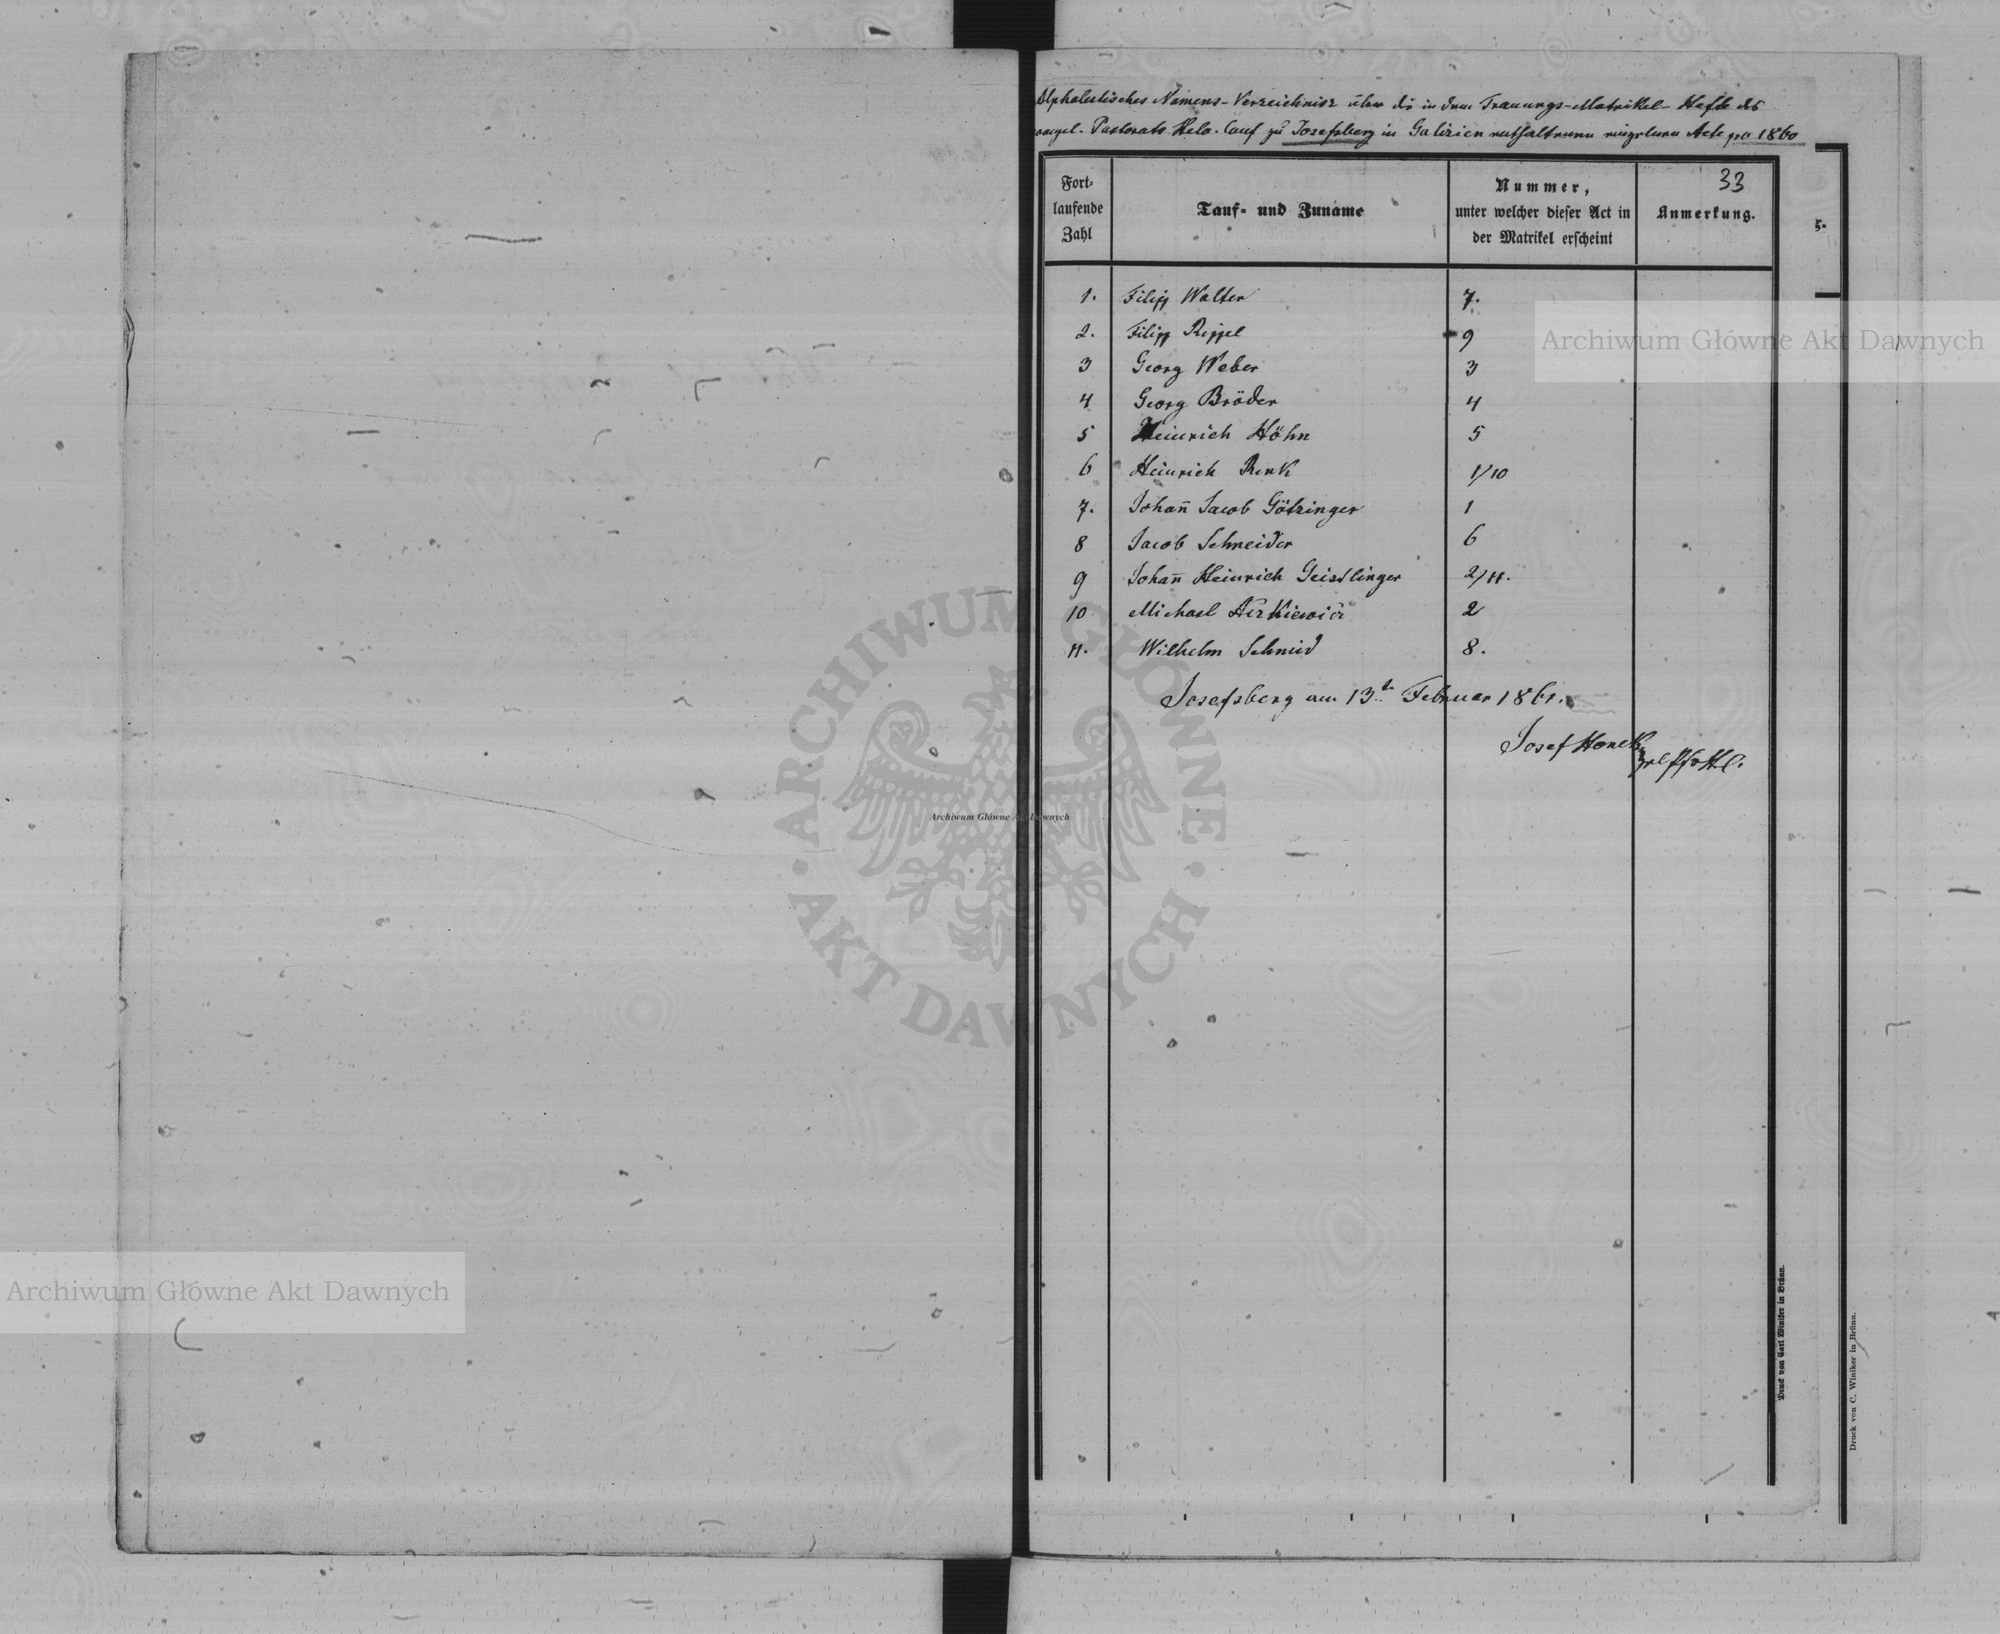 Alphabetisches Namens-Verzeichniss über die in dem Trauungs-Matrikel-Hefte des
evangel. Pastorats Helv. Conf zu Josefsberg in Galizien enthaltenen einzelnen Acte pro 1860
33
Fort-
laufende
Zahl
Tauf- und Zuname
Nummer,
unter welcher dieser Act in
der Matrikel erscheint
Anmerkung.
1. Filipp Walter 7.
2. Filipp Rippel 9
3 Georg Weber 3
4 Georg Bröder 4
5 Heinrich Höhn 5
6 Heinrich Renk 1/10
7. Johañ Jacob Götzinger 1
8 Jacob Schneider 6
9 Johañ Heinrich Geisslinger 2/11.
10 Michael 2
11. Wilhelm Schmid 8.
Josefsberg am 13t Februar 1861.
Josef Honek
Archiwum Główne Akt Dawnych
ARCHIWUM GŁÓWNE AKT DAWNYCH
Archiwum Główne Akt Dawnych
Archiwum Główne Akt Dawnych
Druck von Carl Winiker in Brünn.
Druck von C. Winiker in Brünn.